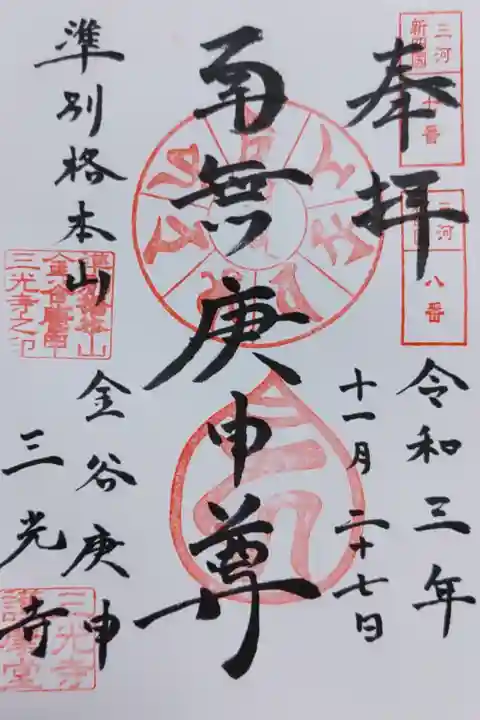 奉拝
三河
新四国
十番
三河
八番
令和三年
十一月二十七日
南無庚申尊
準別格本山
金谷庚申
三光寺
三光寺之印
三光寺
護摩堂